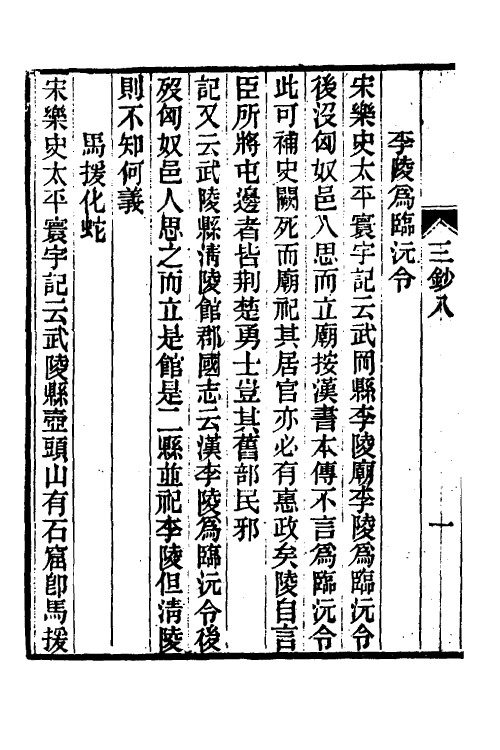 三鈔八
一
李陵爲臨沅令
宋樂史太平寰宇記云武岡縣李陵廟李陵爲臨沅令
後沒匈奴邑人思而立廟按漢書本傳不言爲臨沅令
此可補史闕死而廟祀其居官亦必有惠政矣陵自言
臣所將屯邊者皆荆楚勇士豈其舊部民邪
記又云武陵縣淸陵館郡國志云漢李陵爲臨沅令後
歿匈奴邑人思之而立是館是二縣並祀李陵但淸陵
則不知何義
馬援化蛇
宋樂史太平寰宇記云武陵縣壺頭山有石窟卽馬援